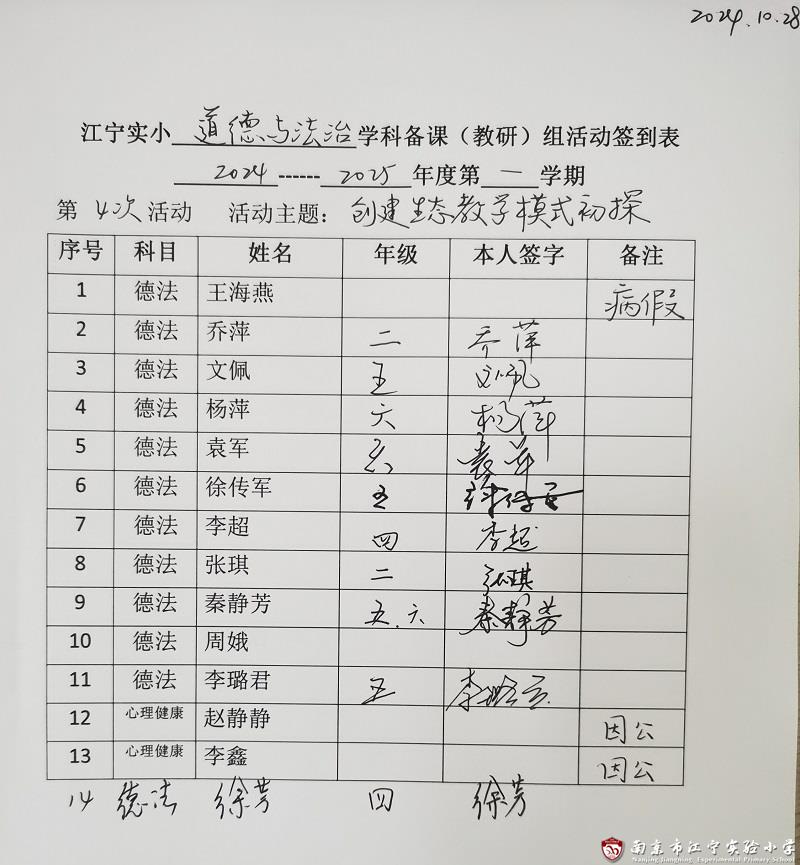 2024.10.28
江宁实小 道德与法治 学科备课（教研）组活动签到表
2024------2025 年度第 一 学期
第 4次 活动 活动主题： 创建生态教学模式初探
序号 科目 姓名 年级 本人签字 备注
1 德法 王海燕 病假
2 德法 乔萍 二 乔萍
3 德法 文佩 五 文佩
4 德法 杨萍 六 杨萍
5 德法 袁军 六 袁军
6 德法 徐传军 五 徐传军
7 德法 李超 四 李超
8 德法 张琪 二 张琪
9 德法 秦静芳 五.六 秦静芳
10 德法 周娥
11 德法 李璐君 五 李璐君
12 心理健康 赵静静 因公
13 心理健康 李鑫 因公
14 德法 徐芳 四 徐芳
南京市江宁实验小学
Nanjing Jiangning Experimental Primary School